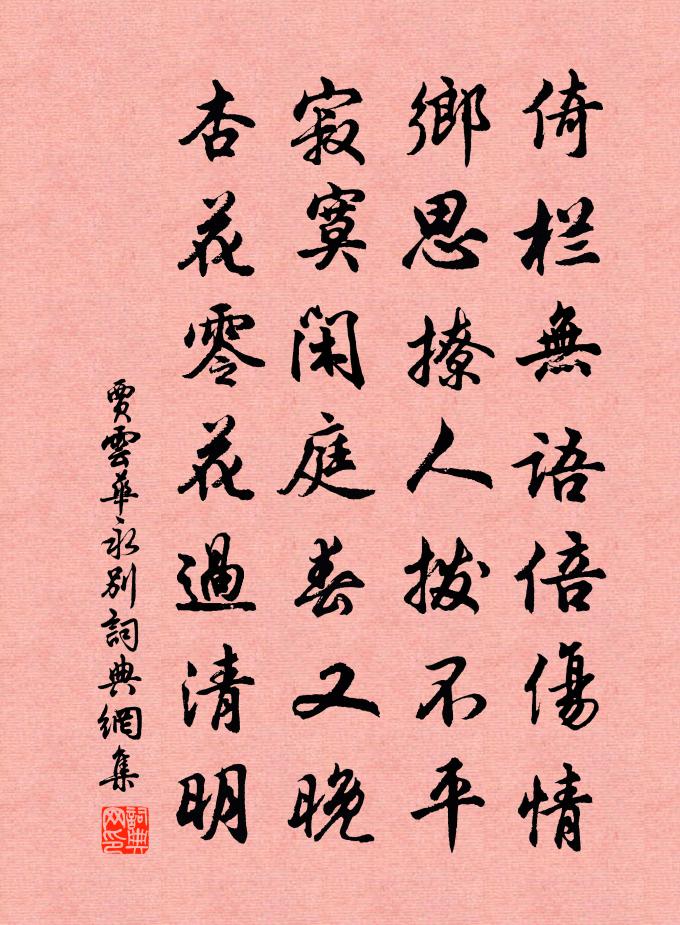 倚栏無語倍傷情
鄉思撩人撥不平
寂寞閑庭春又晚
杏花零花過清明
賈雲華永別詞典網集
詞典网印